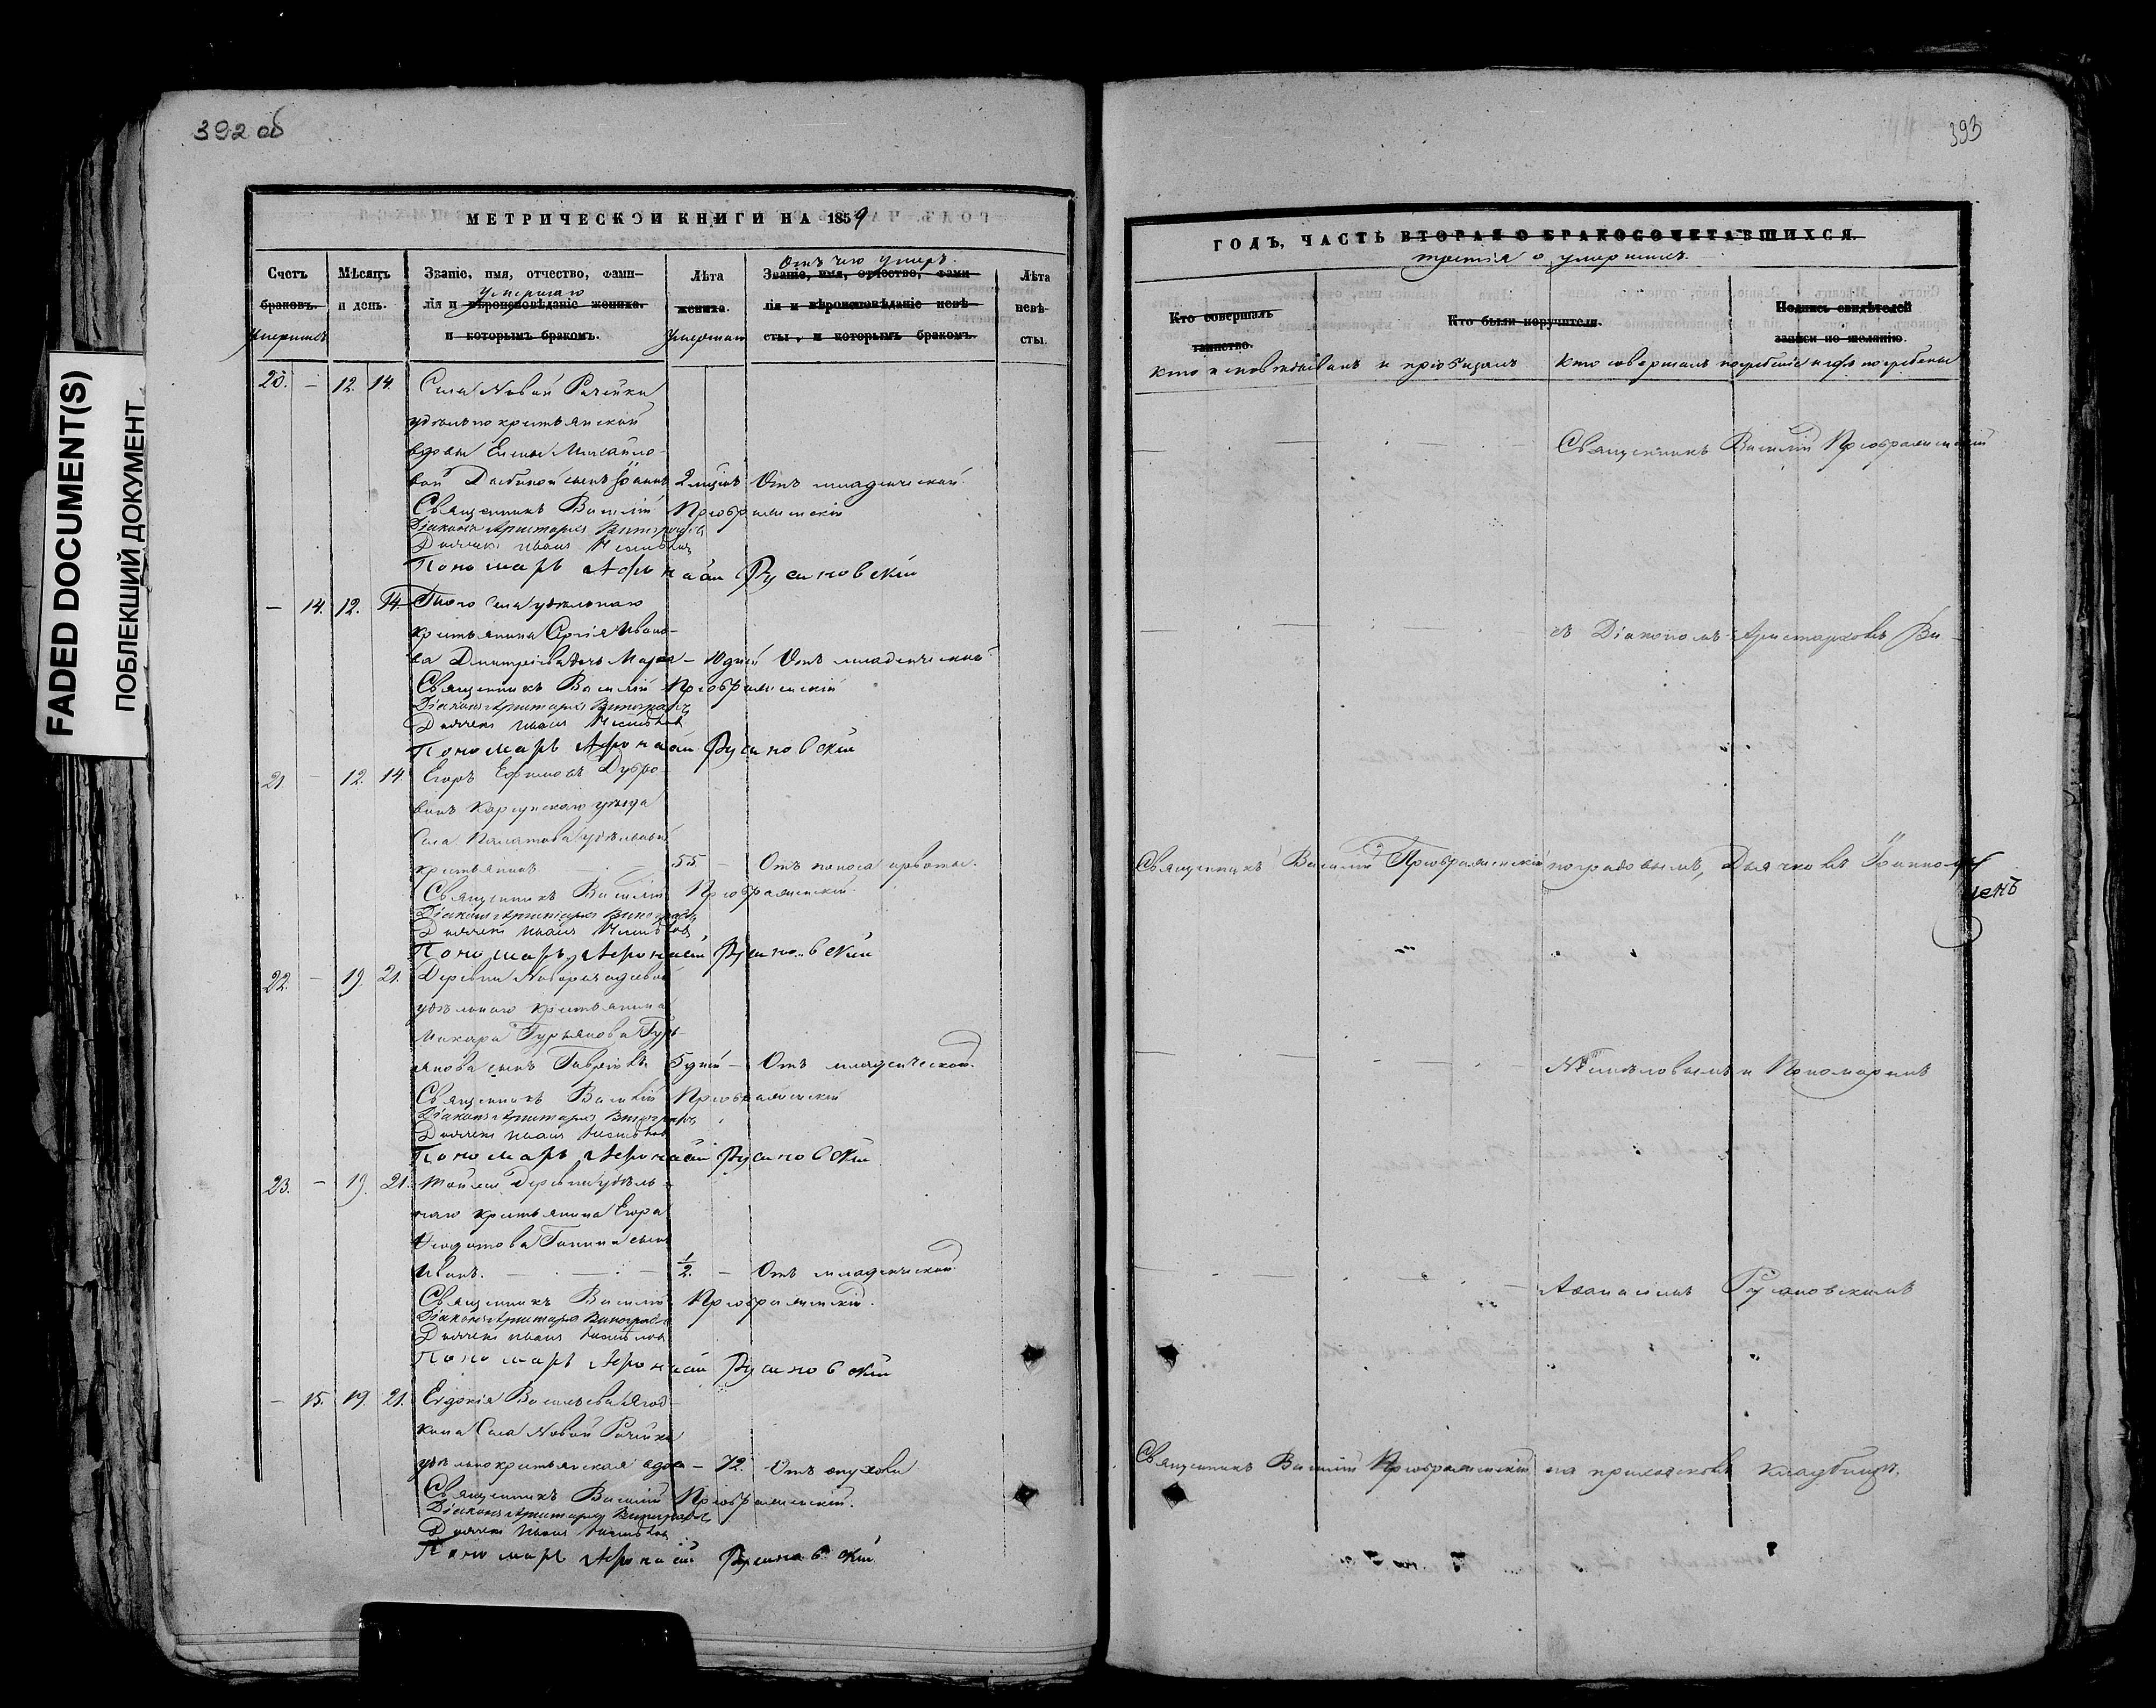 392 об
МЕТРИЧЕСКОЙ КНИГИ НА 1859
Счетъ браковъ. умершихъ
Мѣсяцъ и день.
Званіе, имя, отчество, фами-
лія и вѣроисповѣданіе жениха. умершаго
и которымъ бракомъ.
Лѣта жениха. умершаго
Отъ чего умеръ.
Званіе, имя, отчество, фами-
лія и вѣроисповѣданіе невѣ-
сты, и которымъ бракомъ.
Лѣта невѣ-
сты.
20. – 12. 14. Села Новой Рачейки
удѣльно крестьянской
вдовы Елены Михайло-
вой сынъ Іоаннъ 2 мѣсяц. Отъ младенческой
Священникъ Василій Преображенскій
Діаконъ Аристархъ Виноградовъ
Дьячекъ Иванъ
Пономарь Афонасій Русановскій
– 14. 12. 14 Того села удѣльнаго
крестьянина Сергія Ивано-
ва Дмитріева дочь Марія – 10 дней Отъ младенческой
Священникъ Василій Преображенскій
Діаконъ Аристархъ Виноградовъ
Дьячекъ Иванъ
Пономарь Афонасій Русановскій
21. – 12. 14. Егоръ Ефимовъ Дубро-
винъ Корсунскаго уѣзда
Села удѣльный
крестьянинъ – 55 – Отъ поноса и рвоты.
Священникъ Василій Преображенскій
Діаконъ Аристархъ Виноградовъ
Дьячекъ Иванъ
Пономарь Афонасій Русановскій
22. – 19. 21. Деревни
удѣльнаго крестьянина
Макара Гурьянова Гурь-
янова сынъ Гавріилъ. 5 дней – Отъ младенческой.
Священникъ Василій Преображенскій
Діаконъ Аристархъ Виноградовъ
Дьячекъ Иванъ
Пономарь Афонасій Русановскій
23. – 19. 21. Той же деревни удѣль-
наго крестьянина Егора
сынъ
Иванъ. – 1/2. – Отъ младенческой
Священникъ Василій Преображенскій.
Діаконъ Аристархъ Виноградовъ
Дьячекъ Иванъ
Пономарь Афонасій Русановскій
– 15. 19. 21. Евдокія Васильева Ягод-
кина Села Новой Рачейки
удѣльно крестьянская вдова – 72. Отъ опухоли
Священникъ Василій Преображенскій.
Діаконъ Аристархъ Виноградовъ
Дьячекъ Иванъ
Пономарь Афонасій Русановскій
393
ГОДЪ, ЧАСТЬ ВТОРАЯ О БРАКОСОЧЕТАВШИХСЯ.
третія о умершихъ.
Кто совершалъ
таинство.
Кто были поручители.
Подпись свидѣтелей
записи по желанію.
кто исповѣдывалъ и пріобщалъ
кто совершалъ погребеніе и гдѣ погребены
Священникъ Василій Преображенскій
съ Діакономъ Аристархомъ Ви-
Священникъ Василій Преображенскій
ноградовымъ, Дьячкомъ Іоанномъ
и Пономаремъ
Аѳанасіемъ Русановскимъ
Священникъ Василій Преображенскій
на приходскомъ кладбищѣ.
FADED DOCUMENT(S)
ПОБЛЕКШИЙ ДОКУМЕНТ